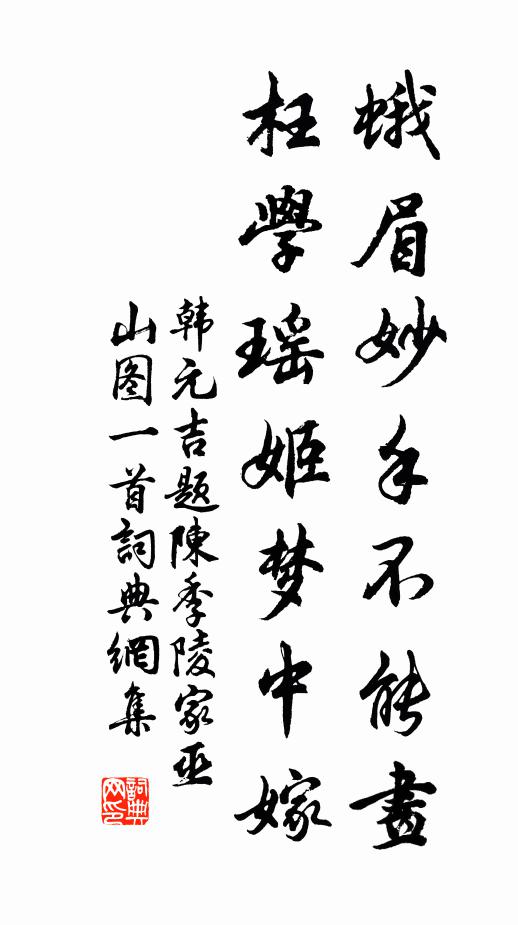 蛾眉妙手不能畫
枉學瑶姬梦中嫁
韩元吉题陳季陵家巫
山图一首詞典網集
詞典
网印